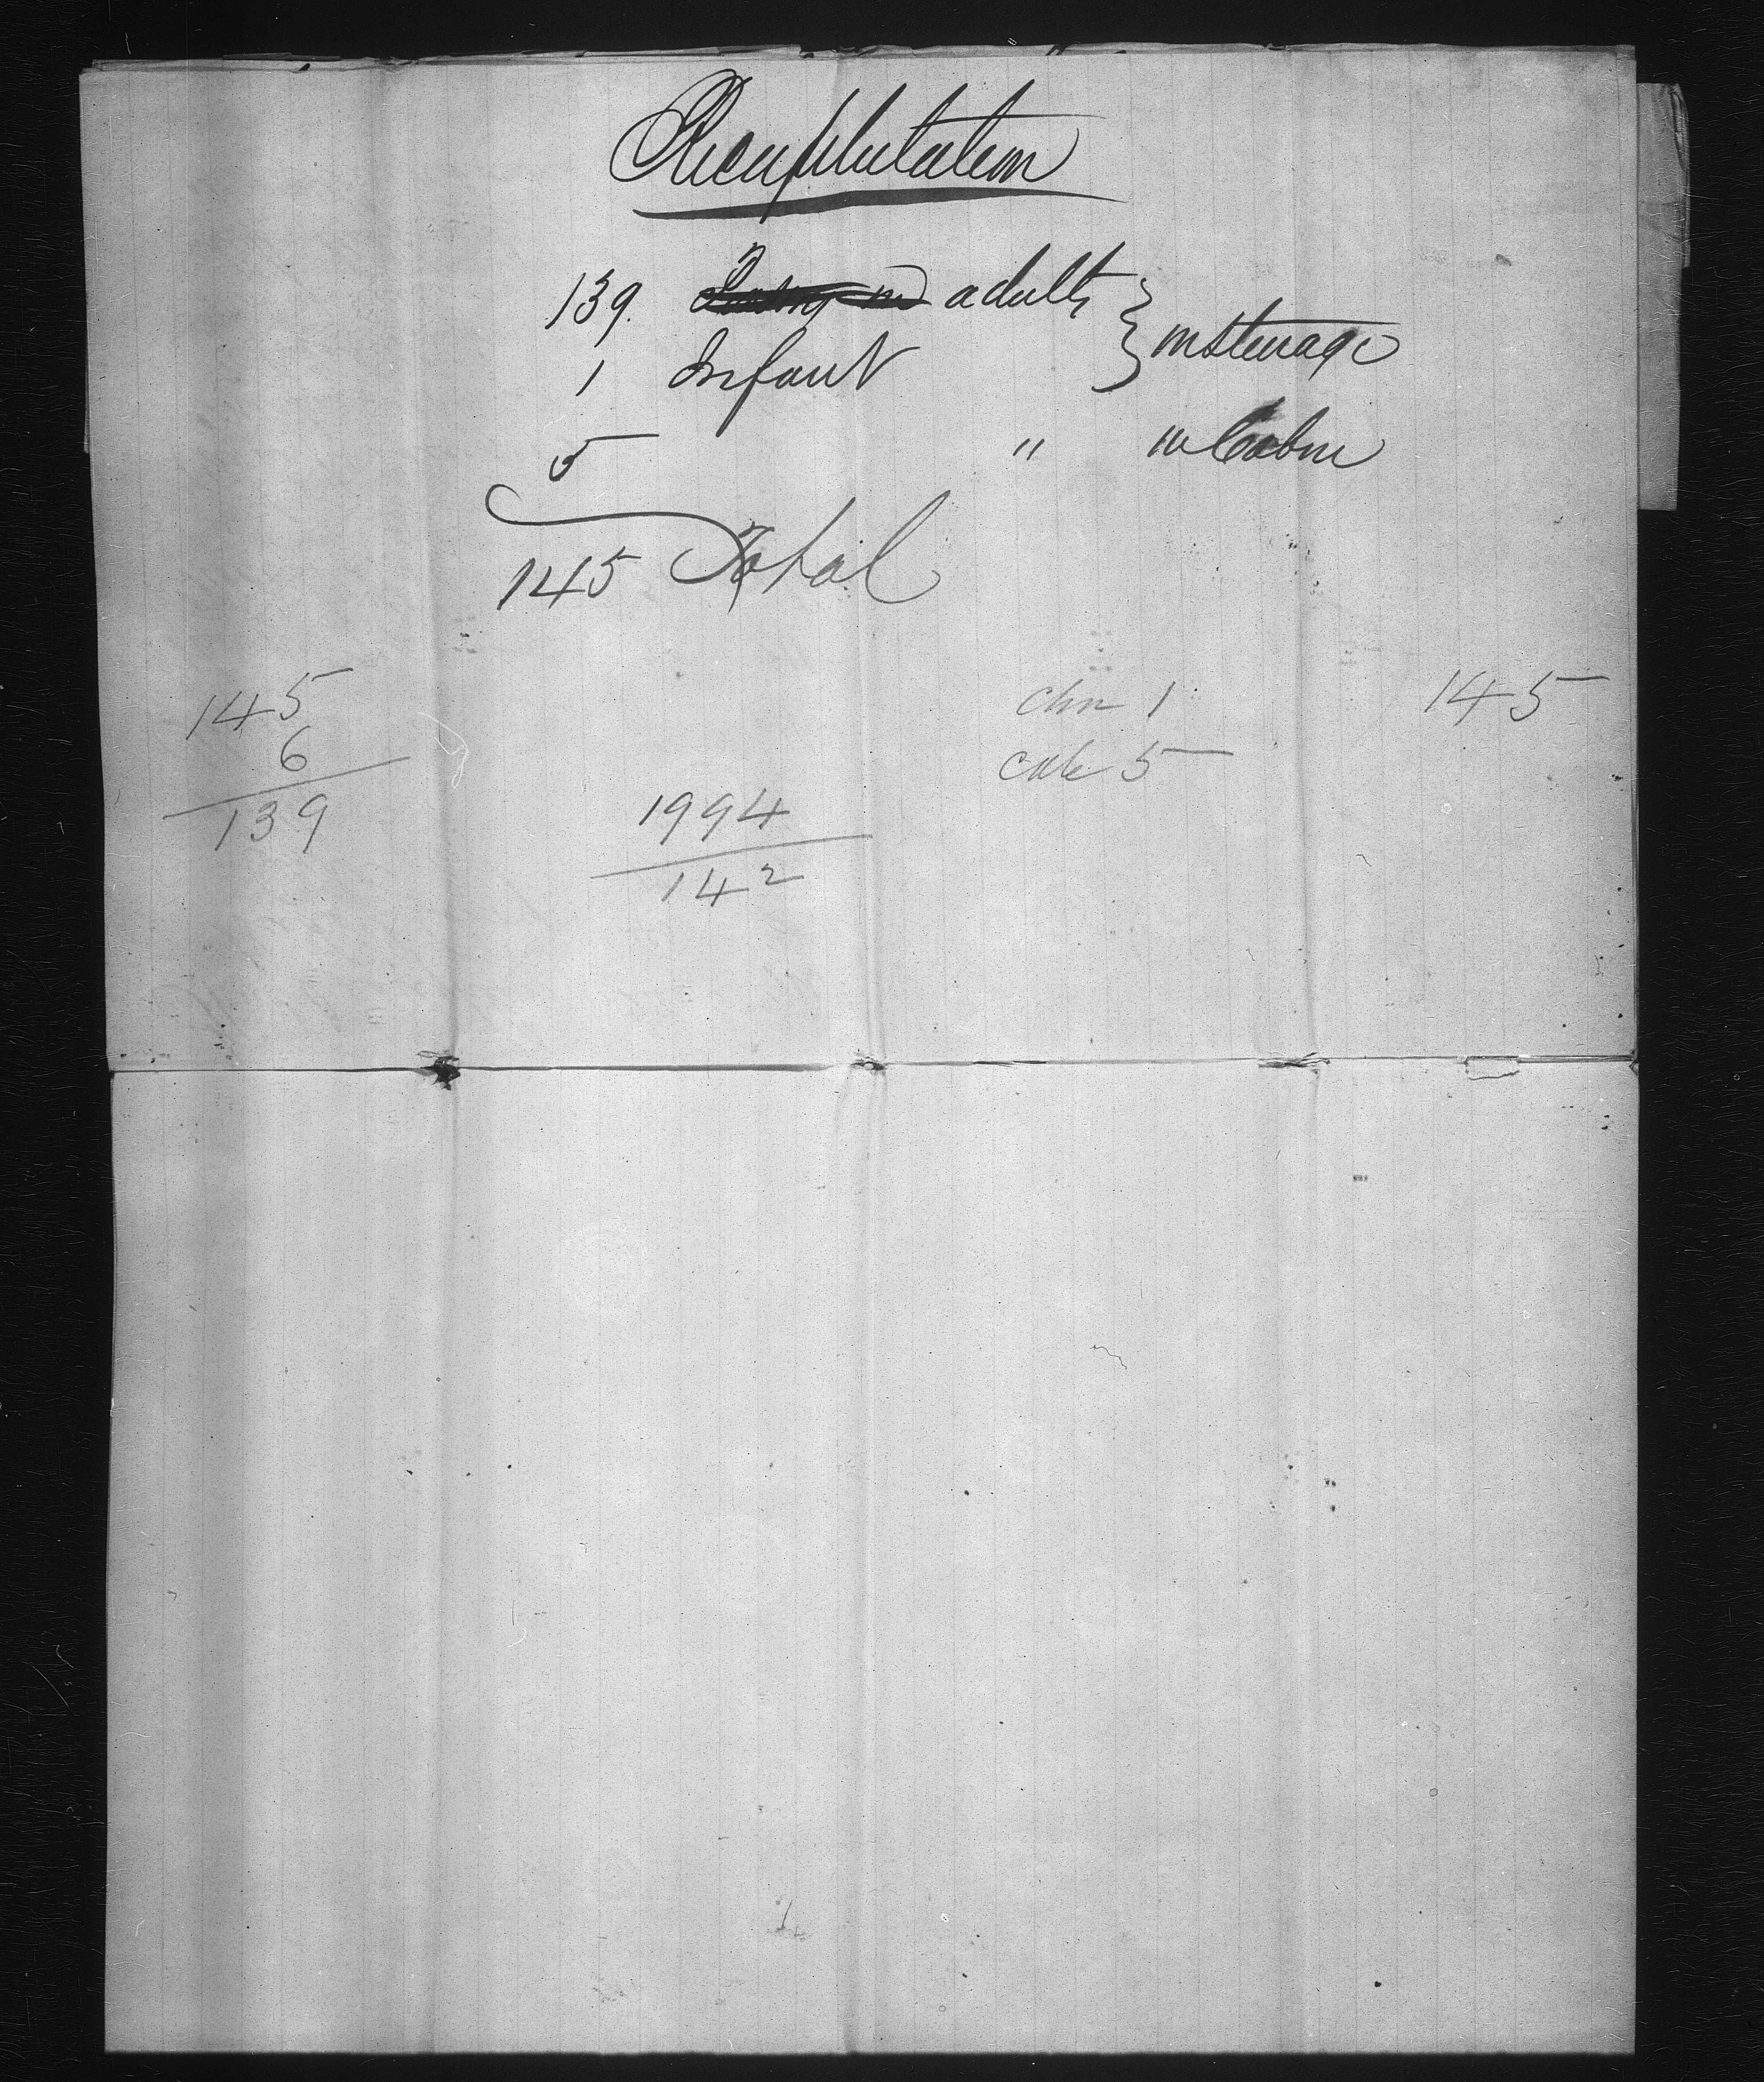 Recapitulation
139. adults
1 Infant
in steerage
5 " in Cabin
145 Total
145
6
139
1994
142
chn 1
cab 5
145